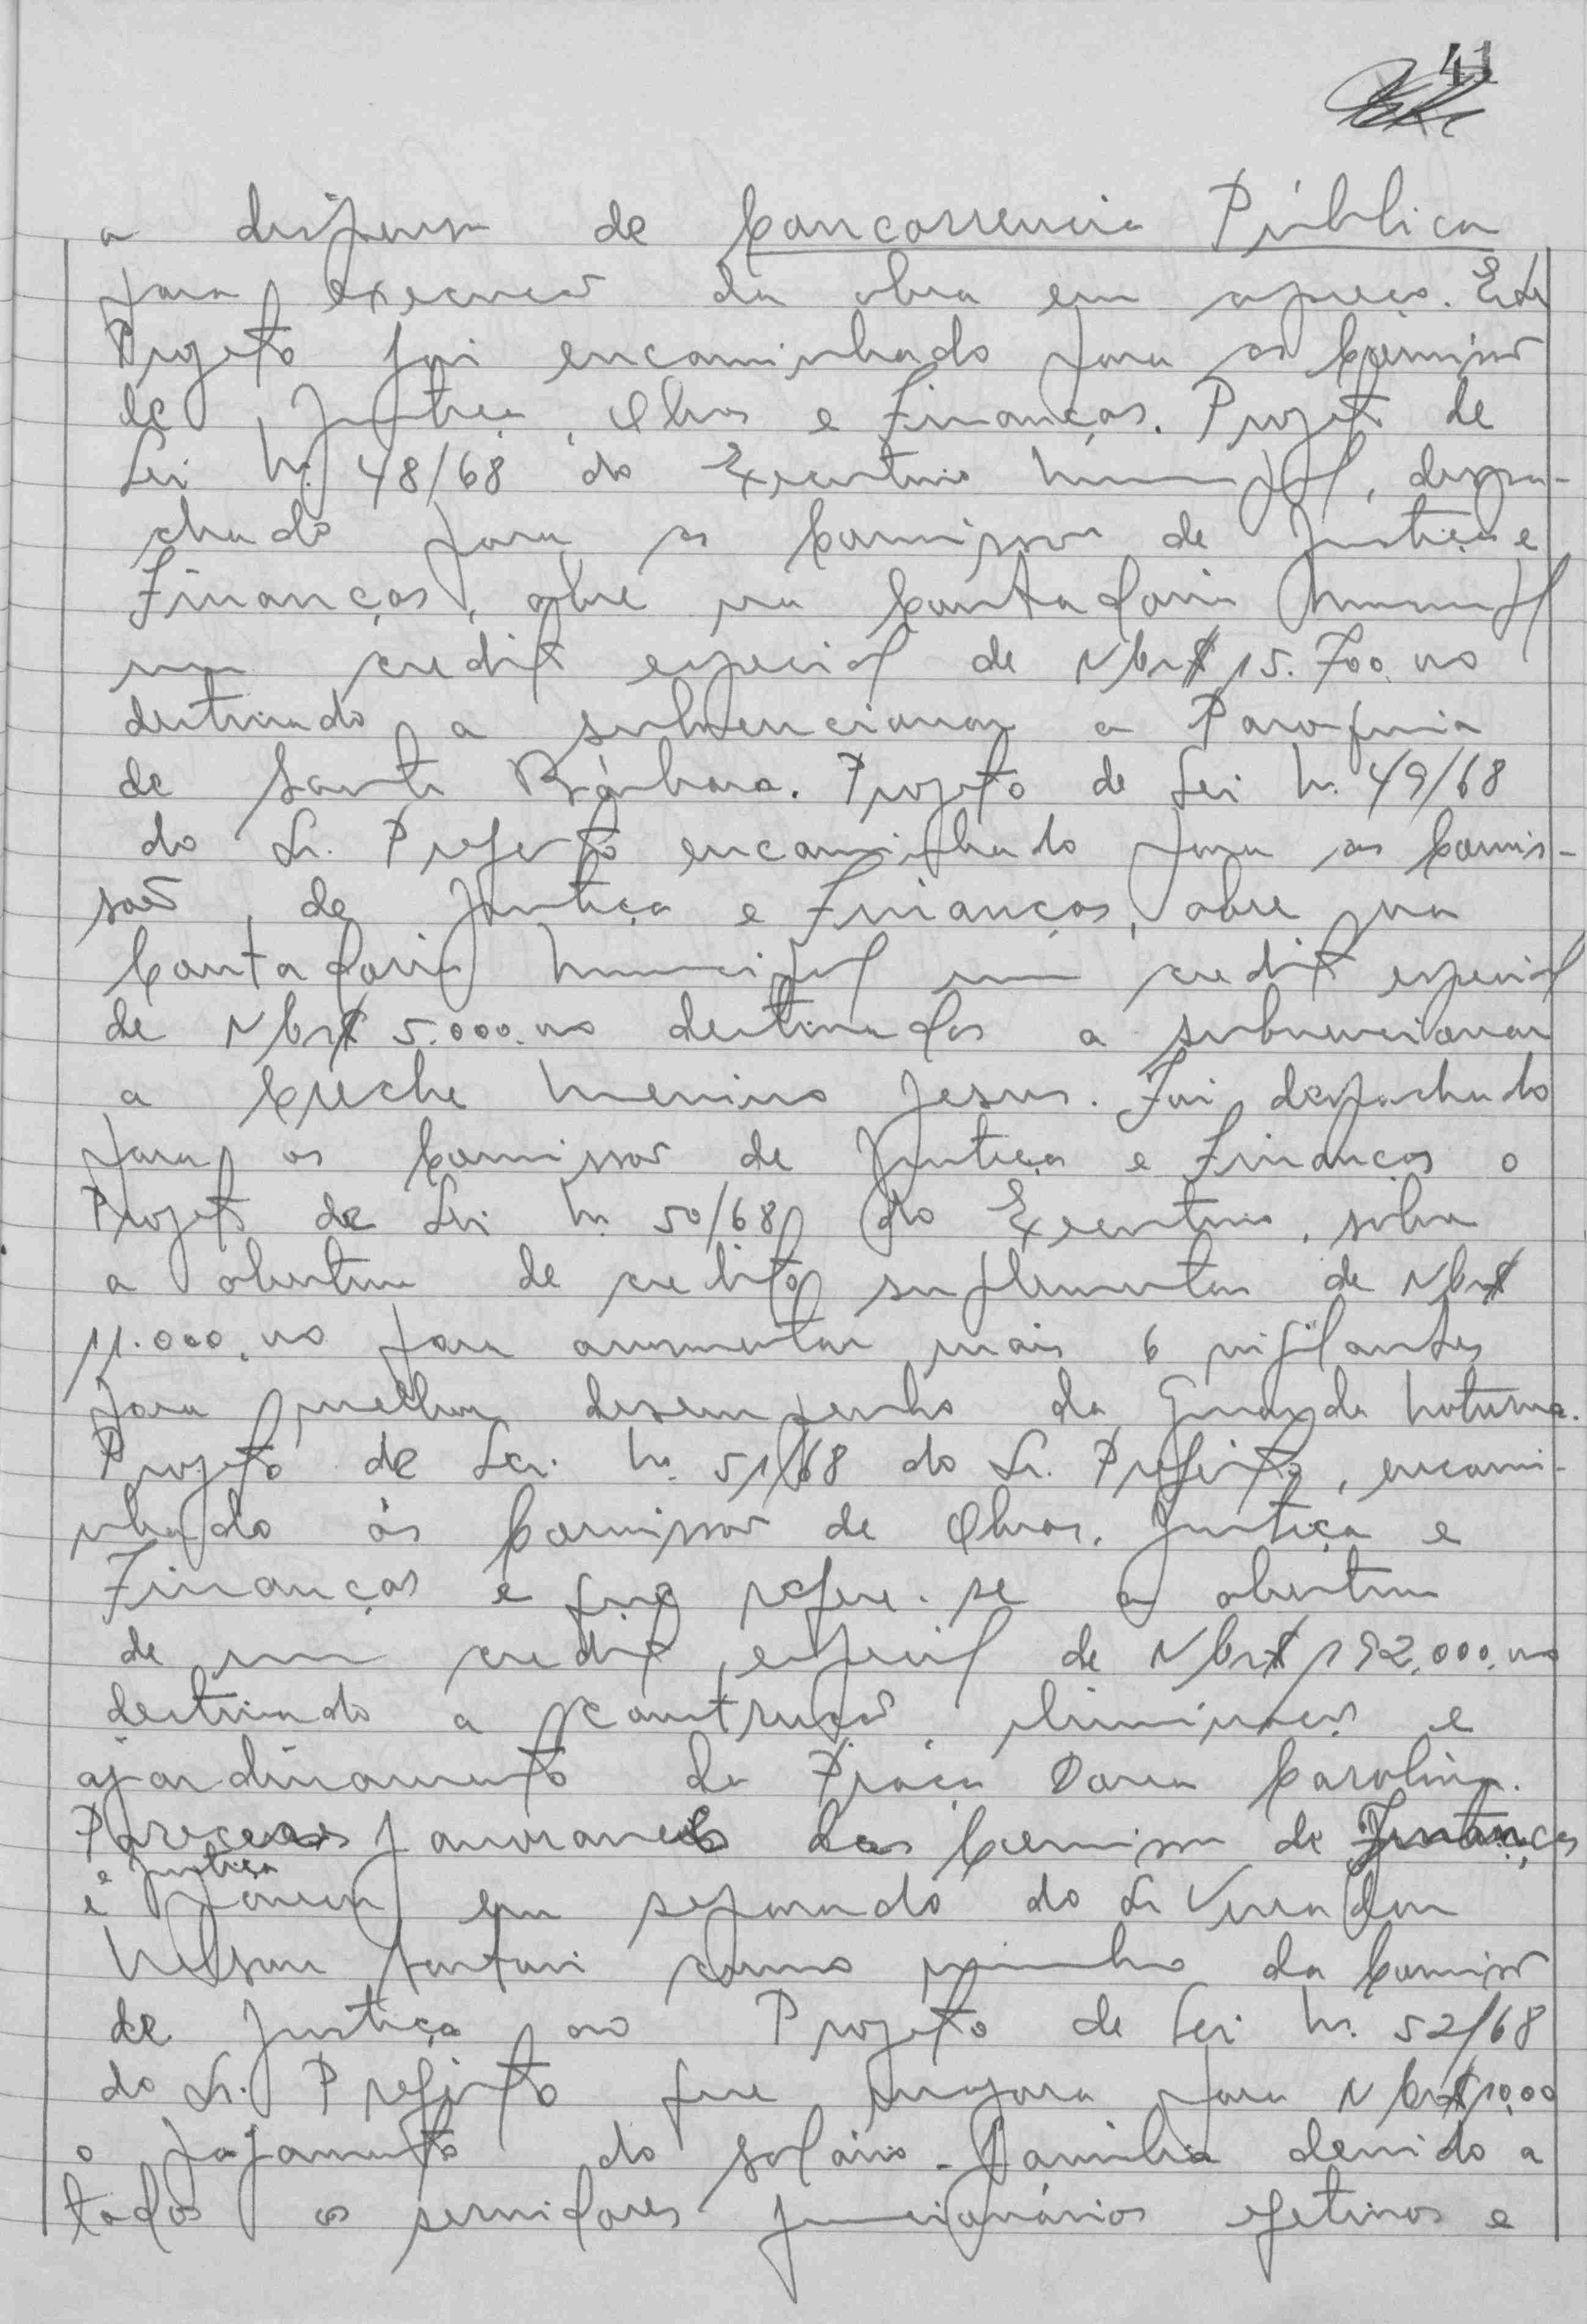 41
a dispensa de Concorrencia Pública
para execucão da obra em apreço. Este
Projeto foi encaminhado para as Comissão
de Justiça, Obras e Finanças. Projeto de
Lei n. 48/68 do Executivo Municipal, despa-
chado para as Comissões de Justiça e
Finanças, abre na Contadoria Municipal
um credito especial de NCr$ 15.700,00
destinado a subvencionar a Paroquia
de Santa Bárbara. Projeto de Lei n. 49/68
do Sr. Prefeito encaminhado para as Comis-
saõ, de Justiça e Finanças, abre na
Contadoria Municipal um credito especial
de NCr$ 5.000,00 destinados a subvencionar
a Creche Menino Jesus. Foi despachado
para as Comissões de Justiça e Finanças o
Projeto de Lei n. 50/68 do Executivo, sobre
a abertura de credito suplementar de NCr$
11.000,00 para aumentar mais 6 vigilantes
para melhor desempenho da Guarda Noturna.
Projeto de Lei n. 51/68 do Sr. Prefeito, encami-
nhado ás Comissões de Obras, Justiça e
Finanças e que refere-se a abertura
de um credito especial de NCr$ 192.000,00
destinado a construção, iluminação e
ajardinamento da Praça Dona Carolina.
Pareceres favoraveis das Comissões de Finanças
e Justiça
e Parecer em separado do Sr Vereador
Nelson como membro da Comissão
de Justiça ao Projeto de Lei n. 52/68
do Sr. Prefeito que majora para NCr$ 10,00
o pagamento do salário-família devido a
todos os servidores funcionários efetivos e